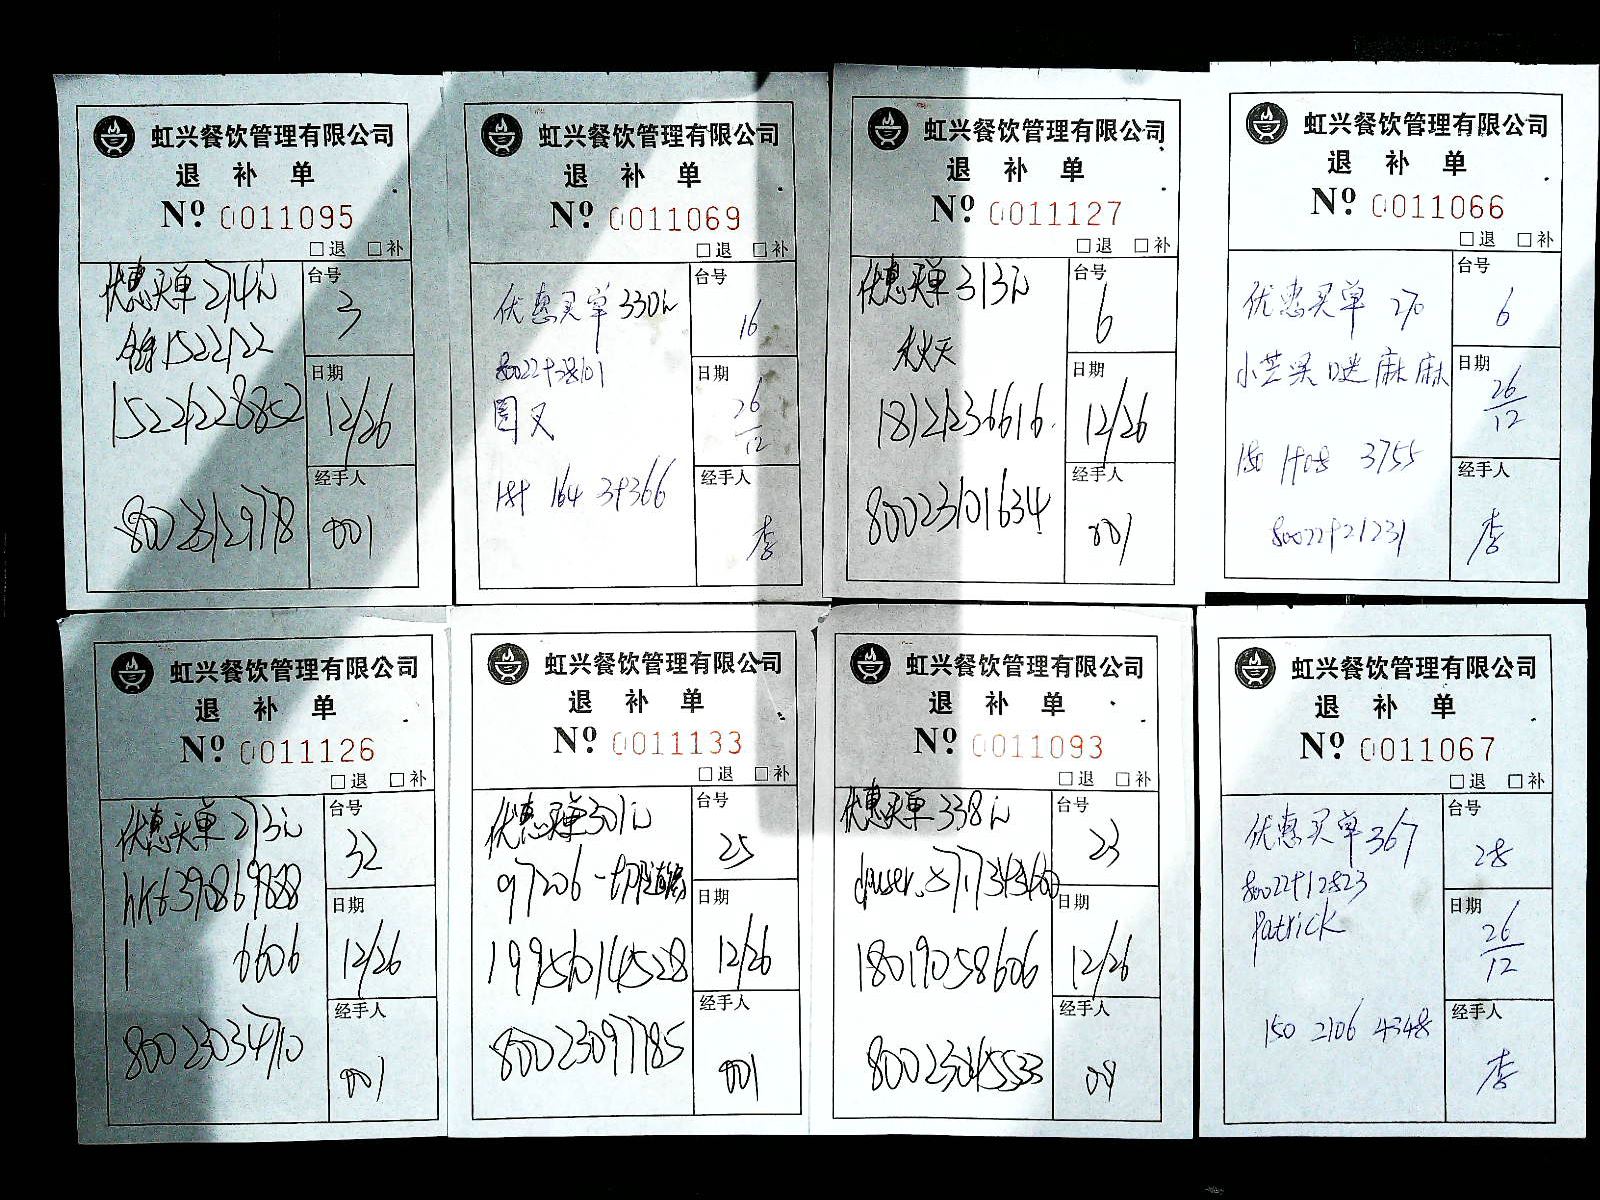 虹兴餐饮管理有限公司
退 补 单
Nº 0011095
□退 □补
优惠买单274元
台号
3
15221228852
日期
12/26
80023129778
经手人
001
虹兴餐饮管理有限公司
退 补 单
Nº 0011069
□退 □补
优惠买单 330元
台号
16
日期
26/12
经手人
李
虹兴餐饮管理有限公司
退 补 单
Nº 0011127
□退 □补
优惠买单313元
台号
6
秋天
18121236616
日期
12/26
80023101634
经手人
001
虹兴餐饮管理有限公司
退 补 单
Nº 0011066
□退 □补
优惠买单 270
台号
6
日期
26/12
3755
80022721231
经手人
李
虹兴餐饮管理有限公司
退 补 单
Nº 0011126
□退 □补
优惠买单273元
台号
32
1 6606
日期
12/26
80023034710
经手人
001
虹兴餐饮管理有限公司
退 补 单
Nº 0011133
□退 □补
优惠买单301元
台号
25
日期
12/26
19956014528
80023097785
经手人
001
虹兴餐饮管理有限公司
退 补 单
Nº 0011093
□退 □补
优惠买单338元
台号
23
18019058606
日期
12/26
经手人
虹兴餐饮管理有限公司
退 补 单
Nº 0011067
□退 □补
优惠买单367
台号
28
80022712823
Patrick
日期
26/12
150 2106 4348
经手人
李